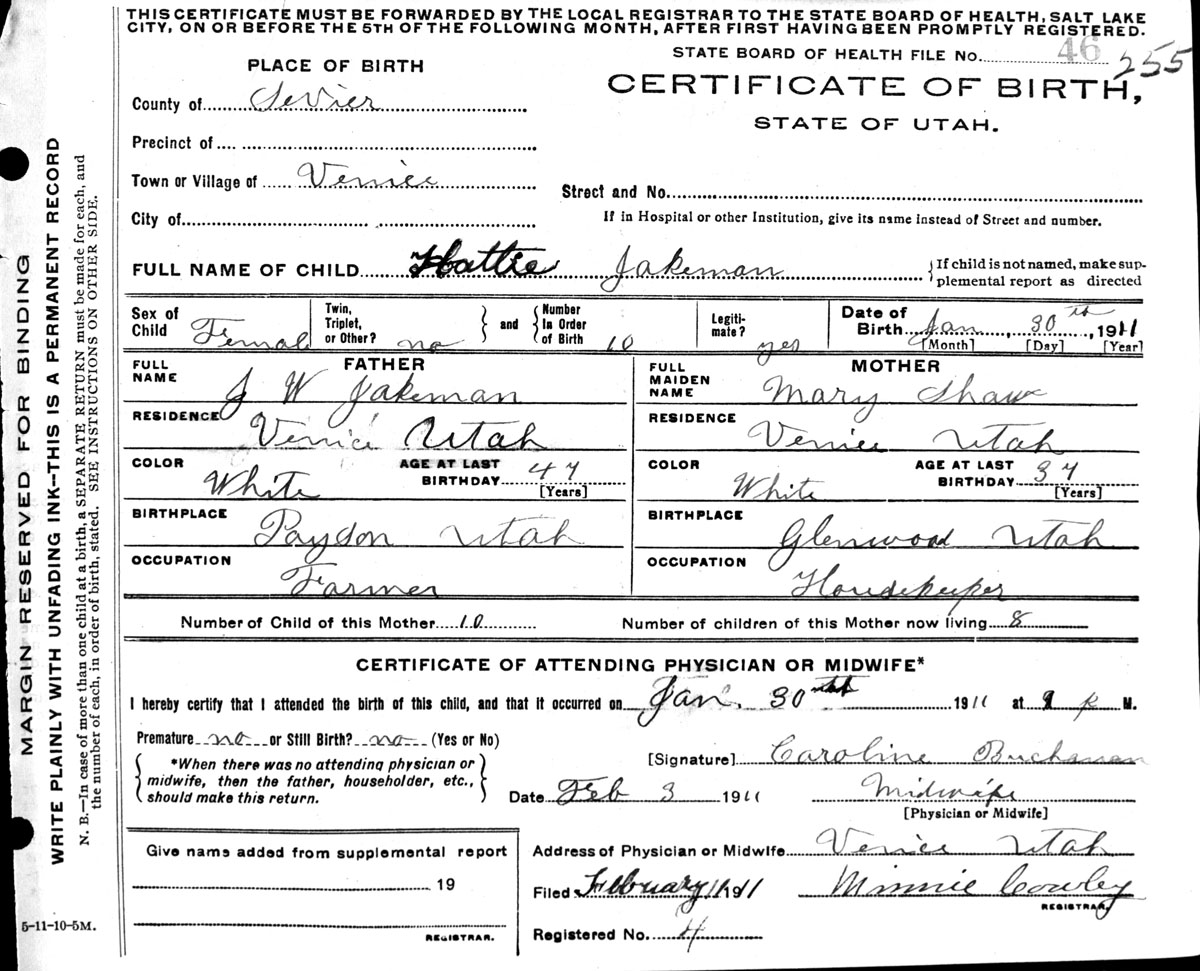 THIS CERTIFICATE MUST BE FORWARDED BY THE LOCAL REGISTRAR TO THE STATE BOARD OF HEALTH, SALT LAKE
CITY, ON OR BEFORE THE 5TH OF THE FOLLOWING MONTH, AFTER FIRST HAVING BEEN PROMPTLY REGISTERED.
STATE BOARD OF HEALTH FILE No. 46 255
PLACE OF BIRTH
CERTIFICATE OF BIRTH,
STATE OF UTAH.
County of Sevier
Precinct of
Town or Village of Venice
Street and No.
City of
If in Hospital or other Institution, give its name instead of Street and number.
FULL NAME OF CHILD Hattie Jakeman
{If child is not named, make sup-
plemental report as directed
Sex of Child Female
Twin, Triplet, or Other? no
and
Number In Order of Birth 10
Legiti-mate? yes
Date of Birth Jan 30th, 1911
[Month] [Day] [Year]
FATHER
FULL NAME J W Jakeman
RESIDENCE Venice Utah
COLOR White
AGE AT LAST BIRTHDAY 47
[Years]
BIRTHPLACE Payson Utah
OCCUPATION Farmer
MOTHER
FULL MAIDEN NAME Mary Shaw
RESIDENCE Venice Utah
COLOR White
AGE AT LAST BIRTHDAY 37
[Years]
BIRTHPLACE Glenwood Utah
OCCUPATION Housekeeper
Number of Child of this Mother 10 Number of children of this Mother now living 8
CERTIFICATE OF ATTENDING PHYSICIAN OR MIDWIFE*
I hereby certify that I attended the birth of this child, and that it occurred on Jan. 30th 1911 at p M.
Premature no or Still Birth? no (Yes or No)
*When there was no attending physician or
midwife, then the father, householder, etc.,
should make this return.
[Signature] Caroline Buchanan
Date Feb 3 1911 Midwife
[Physician or Midwife]
Give name added from supplemental report
19
REGISTRAR.
Address of Physician or Midwife Venice Utah
Filed February 1911 Minnie Cowley
REGISTRAR
Registered No. 4
5-11-10-5M.
MARGIN RESERVED FOR BINDING
WRITE PLAINLY WITH UNFADING INK--THIS IS A PERMANENT RECORD
N. B.—In case of more than one child at a birth, a SEPARATE RETURN must be made for each, and
the number of each, in order of birth, stated. SEE INSTRUCTIONS ON OTHER SIDE.